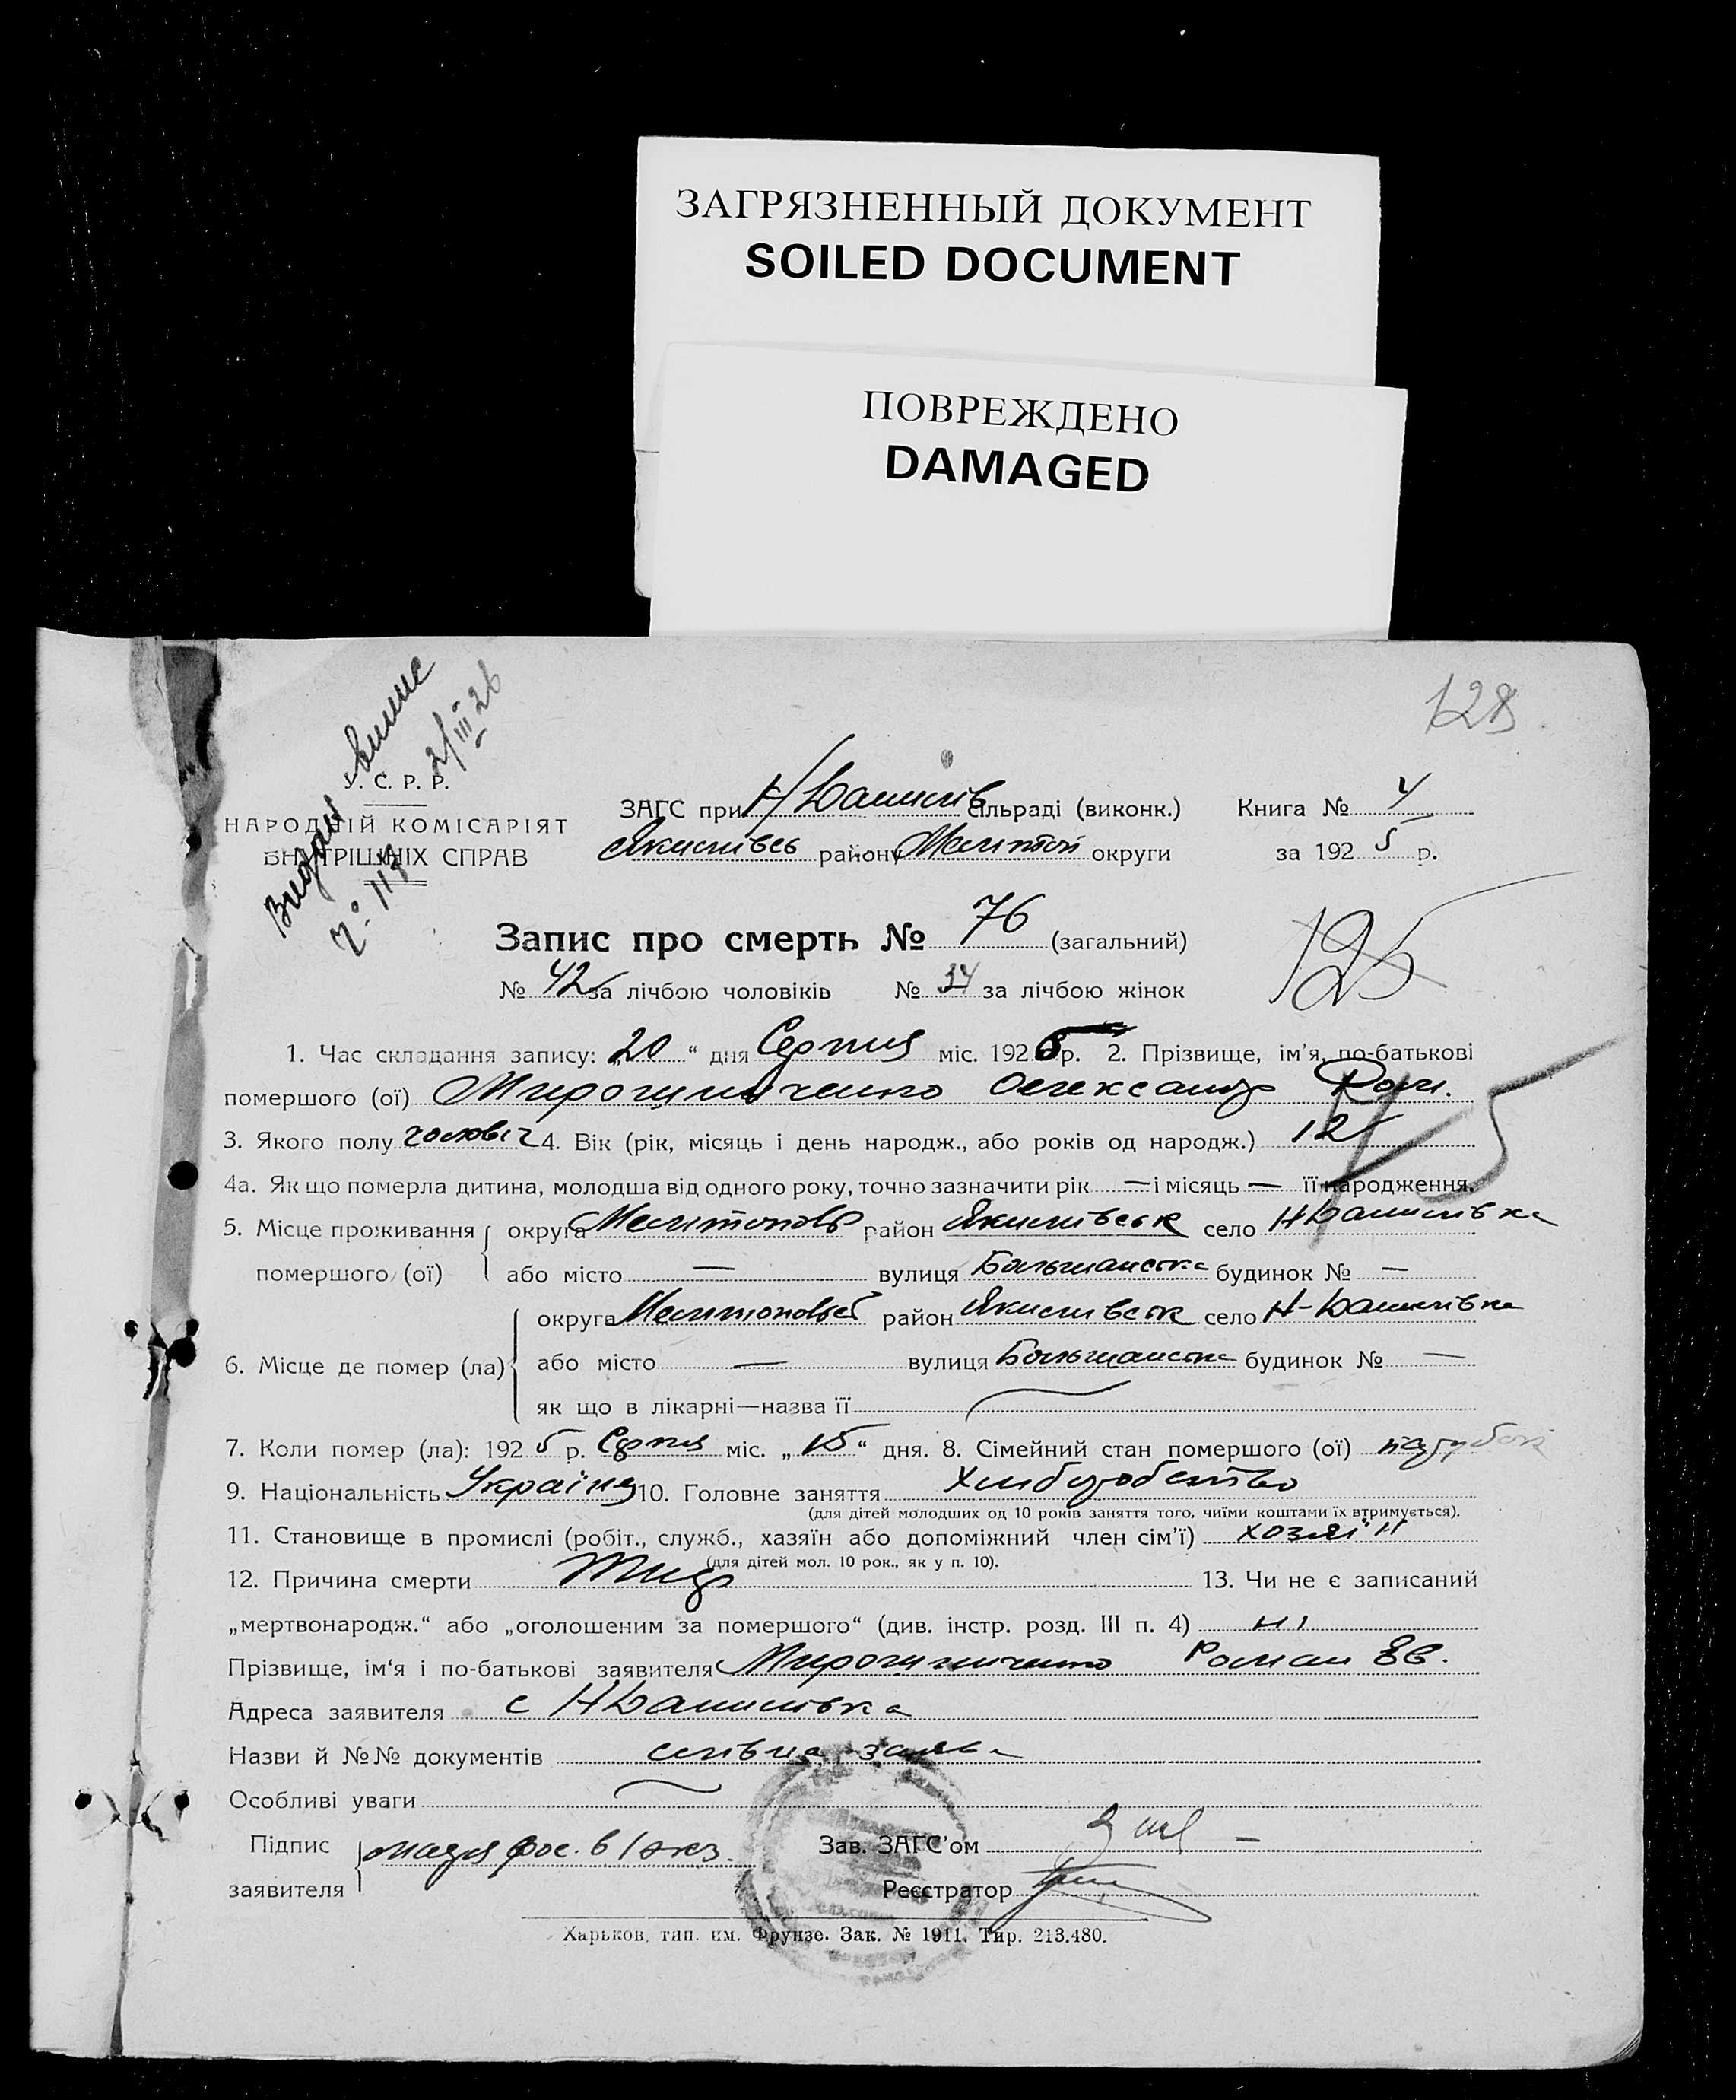 ЗАГРЯЗНЕННЫЙ ДОКУМЕНТ
SOILED DOCUMENT
ПОВРЕЖДЕНО
DAMAGED
128
Видан
2/III 26
№ 113
У. С. Р. Р.
НАРОДНІЙ КОМІСАРІЯТ
ВНУТРІШНІХ СПРАВ
ЗАГС при Н/Данилів сільраді (виконк.) Книга № 4
Якимівсь району Мелітоп округи за 1925 р.
Запис про смерть № 76 (загальний)
№ 42 за лічбою чоловіків № 34 за лічбою жінок
125
1. Час складання запису: „20“ дня Серпня міс. 1925 р. 2. Прізвище, ім'я, по-батькові
помершого (ої) Мирошниченко Олександр Ром.
3. Якого полу чоловіч 4. Вік (рік, місяць і день народж., або років од народж.) 12
4а. Як що померла дитина, молодша від одного року, точно зазначити рік — і місяць — її народження.
5. Місце проживання помершого (ої) округа Мелитопов район Якимівськ село НДанилівка
або місто — вулиця Большанська будинок № —
6. Місце де помер (ла) округа Мелитопольс район Якимівськ село Н-Данилівка
або місто — вулиця Большанська будинок № —
як що в лікарні—назва її
7. Коли помер (ла): 1925 р. Серпня міс. „15“ дня. 8. Сімейний стан помершого (ої) парубок
9. Національність Українц 10. Головне заняття Хліборобство
(для дітей молодших од 10 років заняття того, чиїми коштами їх втримується).
11. Становище в промислі (робіт., служб., хазяїн або допоміжний член сім'ї) хозяїн
(для дітей мол. 10 рок., як у п. 10).
12. Причина смерти Тиф 13. Чи не є записаний
„мертвонародж.“ або „оголошеним за помершого“ (див. інстр. розд. III п. 4) ні
Прізвище, ім'я і по-батькові заявителя Мирошниченко Роман Єв.
Адреса заявителя с НДанилівка
Назви й №№ документів слівна заява
Особливі уваги
Підпис заявителя
Зав. ЗАГС'ом
Реєстратор
Харьков, тип. им. Фрунзе. Зак. № 1911. Тир. 213.480.